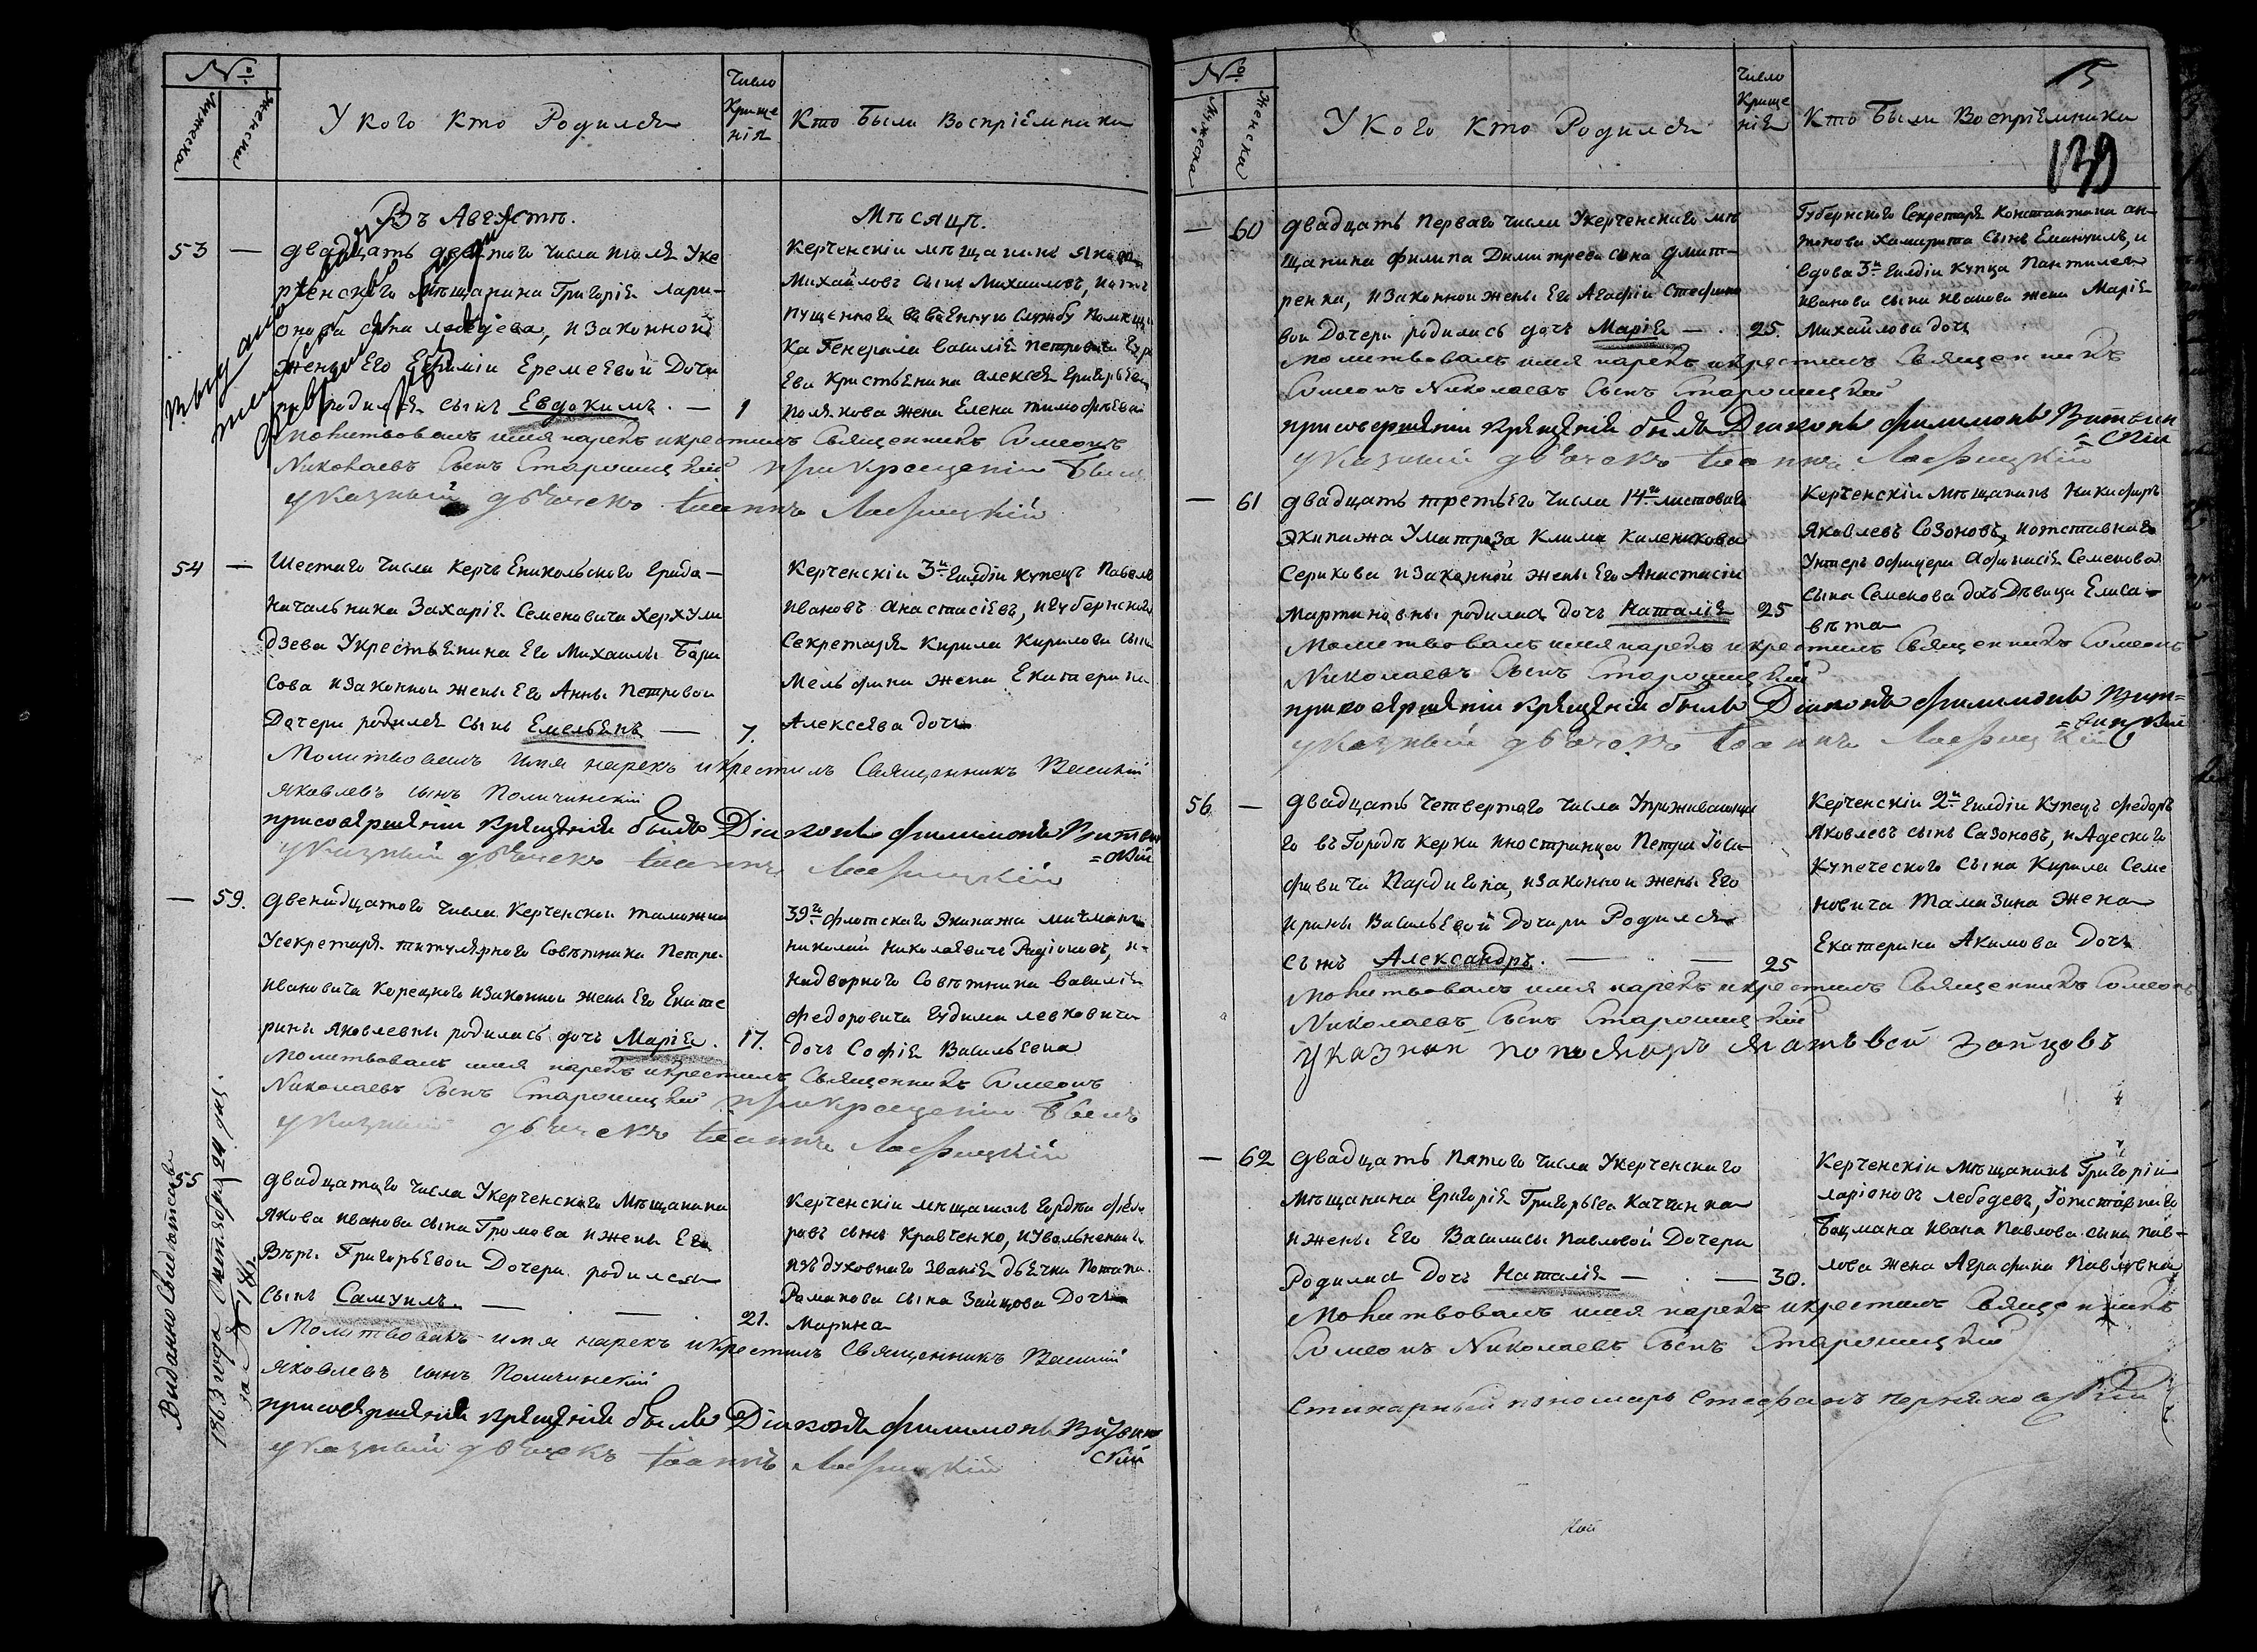 №
Мужеска
Женска
У кого кто Родился
Число
Креще
нія
Кто Были Воспріемники
Въ Августѣ.
Мѣсяцѣ.
53
—
двадцать девятого числа июля Уке
рченского мѣщанина Григорія Лари-
онова сына Лебедева, и законной
жены Его Ефиміи Еремеевой Доче
ри родился сынъ Евдокимъ. —
1
Керченскій мѣщанинъ Яковъ
Михайловъ сынъ Михаиловъ, и отпу
пущенного въ военную службу помѣщи
ка Генерала Василія Петровича
Ева крестьянина Алексея Григорьева
Полякова жена Елена Тимофѣева
Молитвовалъ имя нарекъ и крестилъ Священникъ Симеонъ
Николаевъ Сынъ Старошицкій при крещеніи Былъ
указный дьячекъ Іоаннъ
54
—
Шестаго числа Керчь Еникольского Градо-
начальника Захарія Семеновича Херхули
дзева Укрестьянина Его Михаилы Бори
сова и законной жены Его Анны Петровой
Дочери родился сынъ Емельянъ —
7.
Керченскій 3й Гилдіи купецъ Павелъ
Ивановъ Анастасіевъ, и губернского
Секретаря Кирила Кирилова сына
Мельфина жена Екатерина
Алексѣева дочь
Молитвовалъ имя нарекъ и крестилъ Священникъ Василій
Яковлевъ сынъ Поличинскій
при совершеніи крещенія былъ Діаконъ Филимонъ Витвин
=скій
указный дьячекъ Іоаннъ
—
59.
двенадцатого числа Керченской таможни
Усекретаря титулярного Совѣтника Петра
Ивановича Корецкого и законной жены Его Екате
рины Яковлевны родилась дочь Марія.
17.
39го флотского Экипажа мичманъ
Николай Николаевичъ Радіоновъ, и-
надворного Совѣтника Василія
Федоровича Гудима Левковича
дочь Софія Васильевна
Молитвовалъ имя нарекъ и крестилъ Священникъ Симеонъ
Николаевъ Сынъ Старошицкій при крещеніи Былъ
указный дьячекъ Іоаннъ
55
двадцатаго числа Укерченского Мѣщанина
Якова Иванова сына Громова и жены Его
Вѣры Григорьевой Дочери родился
сынъ Самуилъ. — —
21.
Керченскій мѣщанинъ Гордѣй Федо
ровъ сынъ Кравченко, и Увольненного
изъ духовного званія дьячка Потапа
Романова сына Зайцова Дочь
Марина
Молитвовалъ имя нарекъ и крестилъ Священникъ Василій
Яковлевъ сынъ Поличинскій
при совершеніи крещенія былъ Діаконъ Филимонъ Витвин
скій
указный дьячекъ Іоаннъ
Выдано Свидѣтельс
1863 года Октября 24 дня
за № 186.
№
Мужеска
Женска
У кого кто Родился
Число
Креще
нія
Кто Были Воспріемники
15
139
—
60
двадцать перваго числа Укерченского мѣ
щанина Филипа Димитрева сына Дмит-
ренка, и законной жены Его Агафіи Стефано
вой Дочери родилась дочь Марія —
25.
Губернского Секретаря Константина Ан-
тонова Хамарита сынъ Емануилъ, и
вдова 3й Гилдіи купца Пантилея
Иванова сына Иванова жена Марія
Михайлова дочь
Молитвовалъ имя нарекъ и крестилъ Священникъ
Симеонъ Николаевъ Сынъ Старошицкій
при совершеніи крещенія былъ Діаконъ Филимонъ Витвин
=скій
указный дьячекъ Іоаннъ
—
61
двадцать третьего числа 14го ластового
Экипажа Уматроза Клима Каленикова
Серикова и законной жены Его Анастасіи
Мартиновны родилась дочь Наталія
25
Керченскій мѣщанинъ Никифоръ
Яковлевъ Созоновъ, и отставного
Унтеръ офицера Афанасія Семенова
сына Семенова дочь Дѣвица Елиса-
вѣта
Молитвовалъ имя нарекъ и крестилъ Священникъ Симеонъ
Николаевъ Сынъ Старошицкій
при совершеніи крещеніи былъ Діаконъ Филимонъ Вит=
=винскій
указный дьячекъ Іоаннъ
56
—
двадцать четвертого числа Упроживающа
го въ Городѣ Керчи иностранца Петра Іоси-
фовича Пардигона, и законной жены Его
Ирины Васильевой Дочери Родился
сынъ Александръ. — —
25
Керченскій 2й Гилдіи купецъ Федоръ
Яковлевъ сынъ Сазоновъ, и Адеского
Купеческого сына Кирила Семе
новича Тамазина жена
Екатерина Акимова Дочь
Молитвовалъ имя нарекъ и крестилъ Священникъ Симеонъ
Николаевъ Сынъ Старошицкій
Указнаи понамарь Матвей Зайцовъ
—
62
двадцать пятого числа Укерченского
мѣщанина Григорія Григорьева
и жены Его Василисы Павловой Дочери
Родилась Дочь Наталія — —
30.
Керченскій мѣщанинъ Григорій
Ларіоновъ Лебедевъ, и отставного
Боцмана Ивана Павлова сына Пав-
лова жена Аграфина Павловна
Молитвовалъ имя нарекъ и крестилъ Священникъ
Симеонъ Николаевъ Сынъ Старошицкій
Стихарный пономарь Стефанъ